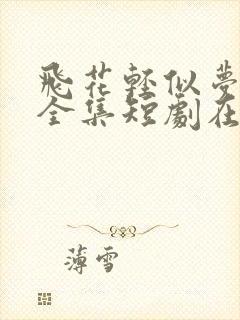 飛花輕似夢
全集短劇在
薄雪